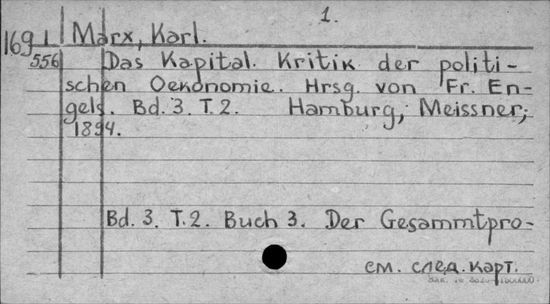 1.
169 1 Marx, Karl.
556 Das Kapital. Kritik der politi-
schen Oekonomie. Hrsg. von Fr. En-
gels. Bd. 3. T. 2. Hamburg, Meissner,
1894.
Bd. 3. T. 2. Buch 3. Der Gesammtpro-
см. след. карт.